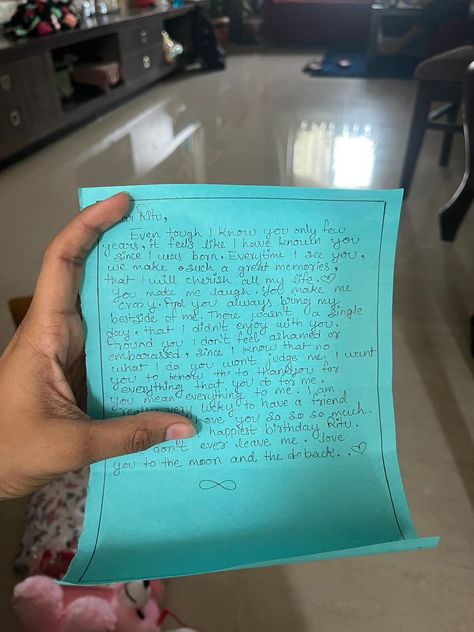 ar Ritu,
Even tough I know you only few
years, it feels like I have known you
since I was born. Everytime I see you,
we make such a great memories,
that I will cherish all my life.♡
You make me laugh. You make me
crazy. And you always bring my
bestside of me. There wasn't a single
day, that I didn't enjoy with you.
Around you I don't feel ashamed or
embarrased, since I know that no
what I do you won't judge me. I want
you to know to thankyou for
everything that you do for me.
You mean everything to me. I am
really very lucky to have a friend
love you so so so much.
happiest birthday Ritu.
don't ever leave me. love
you to the moon and the back..♡
∞